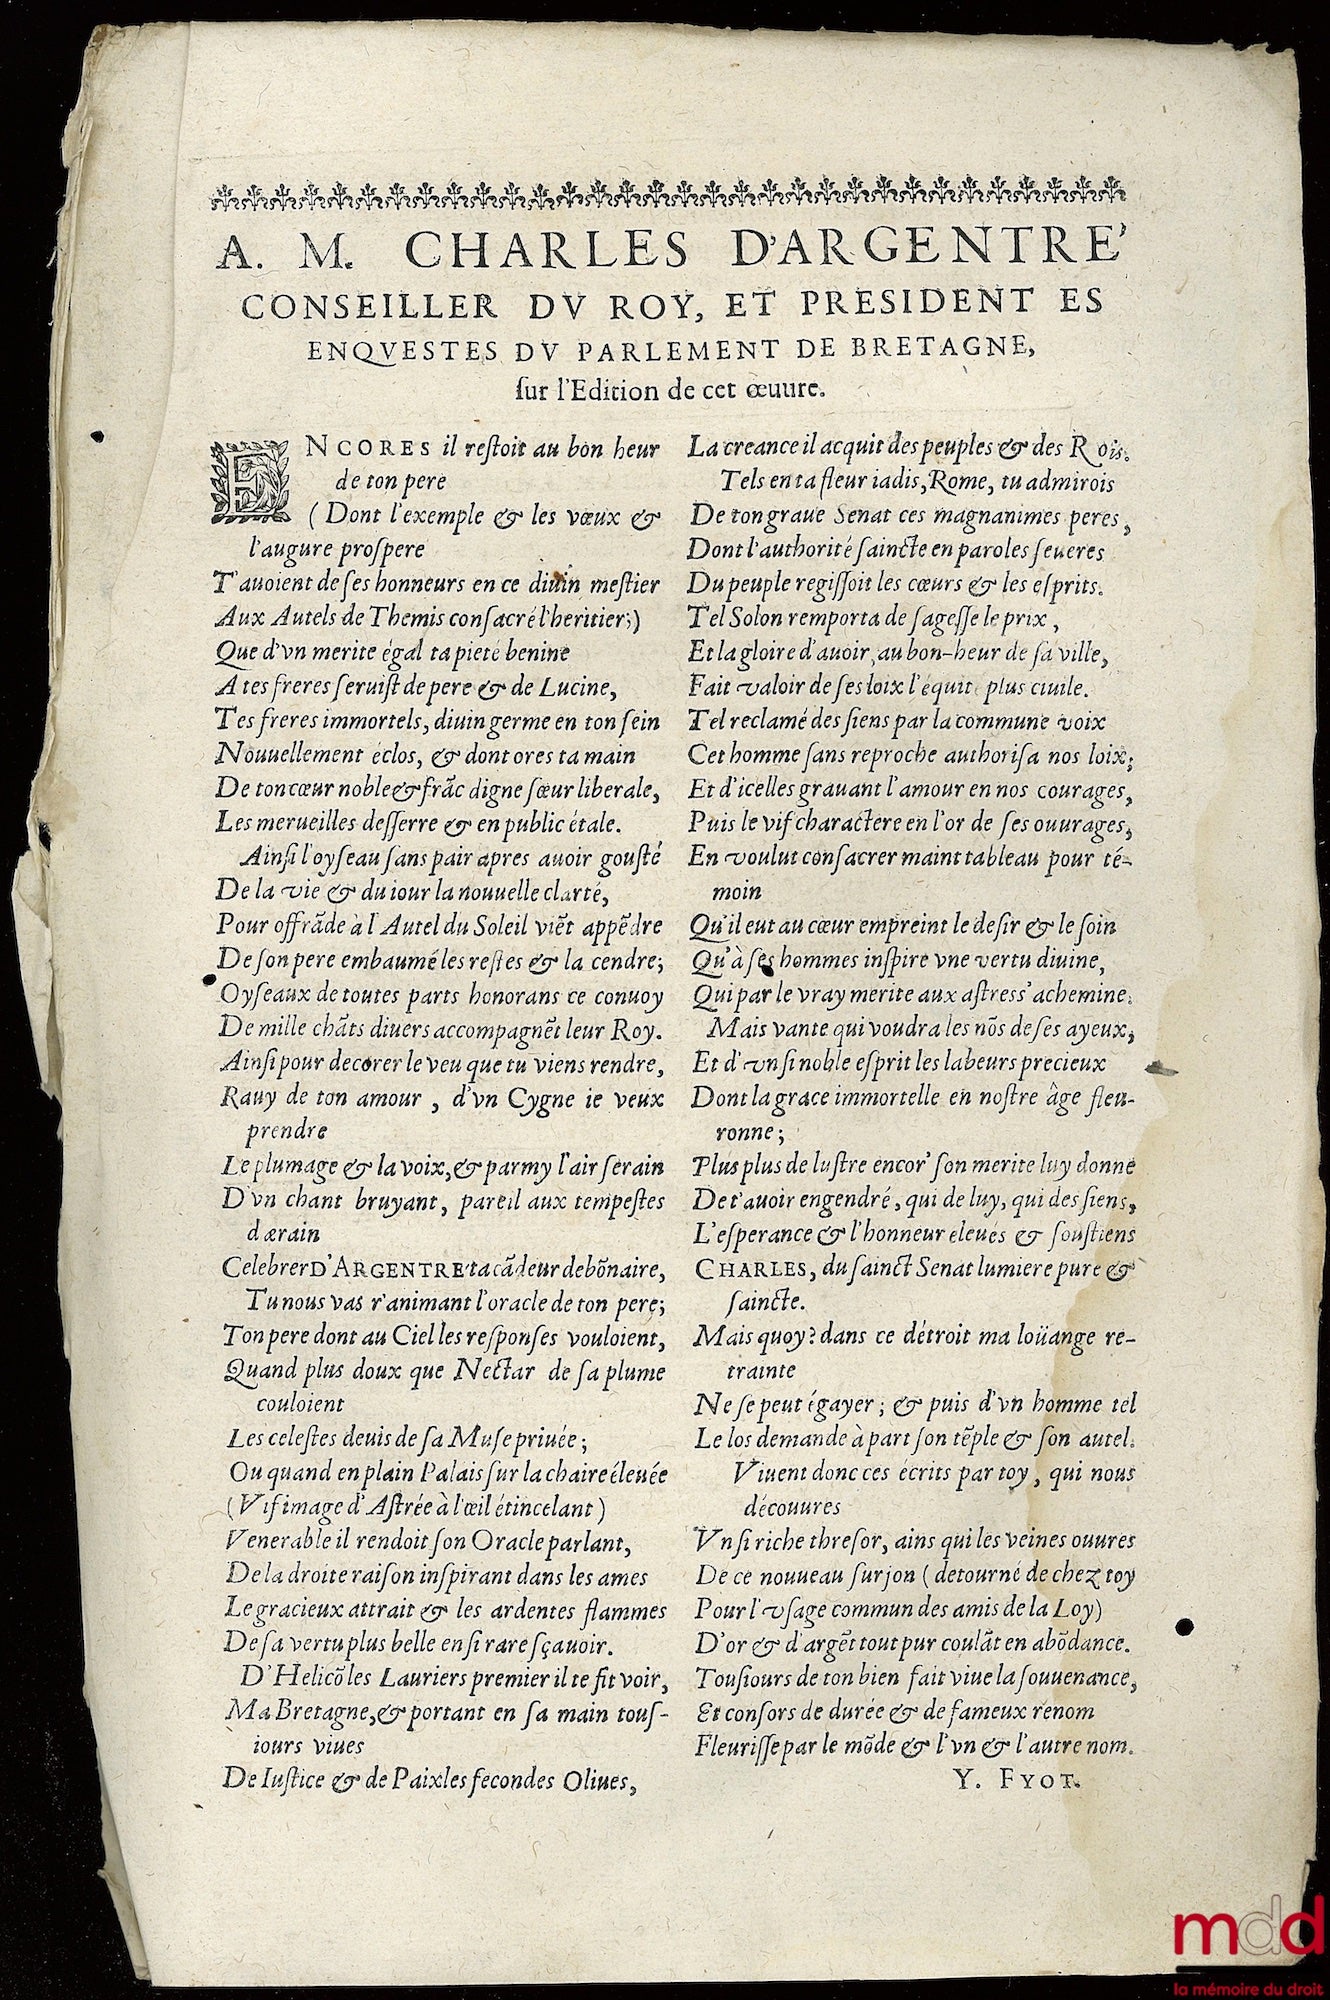 A. M. CHARLES D'ARGENTRE'
CONSEILLER DV ROY, ET PRESIDENT ES
ENQVESTES DV PARLEMENT DE BRETAGNE,
ſur l'Edition de cet œuure.
ENCORES il reſtoit au bon heur
de ton pere
(Dont l'exemple & les vœux &
l'augure proſpere
T'auoient de ſes honneurs en ce diuin meſtier
Aux Autels de Themis conſacré l'heritier;)
Que d'vn merite égal ta pieté benine
A tes freres ſeruiſt de pere & de Lucine,
Tes freres immortels, diuin germe en ton ſein
Nouuellement éclos, & dont ores ta main
De ton cœur noble & frãc digne ſœur liberale,
Les merueilles deſſerre & en public étale.
Ainſi l'oyſeau ſans pair apres auoir gouſté
De la vie & du iour la nouuelle clarté,
Pour offrãde à l'Autel du Soleil viẽt appẽdre
De ſon pere embaumé les reſtes & la cendre;
Oyſeaux de toutes parts honorans ce conuoy
De mille chãts diuers accompagnẽt leur Roy.
Ainſi pour decorer le veu que tu viens rendre,
Rauy de ton amour, d'vn Cygne ie veux
prendre
Le plumage & la voix, & parmy l'air ſerain
D'vn chant bruyant, pareil aux tempeſtes
dærain
Celebrer D'ARGENTRE' ta cãdeur debõnaire,
Tu nous vas r'animant l'oracle de ton pere;
Ton pere dont au Ciel les reſponſes vouloient,
Quand plus doux que Nectar de ſa plume
couloient
Les celeſtes deuis de ſa Muſe priuée;
Ou quand en plain Palais ſur la chaire éleuée
(Vif image d'Aſtrée à l'œil étincelant)
Venerable il rendoit ſon Oracle parlant,
De la droite raiſon inſpirant dans les ames
Le gracieux attrait & les ardentes flammes
De ſa vertu plus belle en ſi rare ſçauoir.
D'Helicõ les Lauriers premier il te fit voir,
Ma Bretagne, & portant en ſa main touſ-
iours viues
De Iuſtice & de Paix les fecondes Oliues,
La creance il acquit des peuples & des Rois.
Tels en ta fleur iadis, Rome, tu admirois
De ton graue Senat ces magnanimes peres,
Dont l'authorité ſaincte en paroles ſeueres
Du peuple regiſſoit les cœurs & les eſprits.
Tel Solon remporta de ſageſſe le prix,
Et la gloire d'auoir, au bon-heur de ſa ville,
Fait valoir de ſes loix l'équité plus ciuile.
Tel reclamé des ſiens par la commune voix
Cet homme ſans reproche authoriſa nos loix;
Et d'icelles grauant l'amour en nos courages,
Puis le vif charactere en l'or de ſes ouurages,
En voulut conſacrer maint tableau pour té-
moin
Qu'il eut au cœur empreint le deſir & le ſoin
Qu'à ſes hommes inſpire vne vertu diuine,
Qui par le vray merite aux aſtres s'achemine.
Mais vante qui voudra les nõs de ſes ayeux,
Et d'vn ſi noble eſprit les labeurs precieux
Dont la grace immortelle en noſtre âge fleu-
ronne;
Plus plus de luſtre encor' ſon merite luy donne
De t'auoir engendré, qui de luy, qui des ſiens,
L'eſperance & l'honneur eleués & ſouſtiens
CHARLES, du ſainct Senat lumiere pure &
ſaincte.
Mais quoy? dans ce détroit ma loüange re-
trainte
Ne ſe peut égayer; & puis d'vn homme tel
Le los demande à part ſon tẽple & ſon autel.
Viuent donc ces écrits par toy, qui nous
découures
Vn ſi riche threſor, ains qui les veines ouures
De ce nouueau ſurjon (detourné de chez toy
Pour l'vſage commun des amis de la Loy)
D'or & d'argẽt tout pur coulãt en abõdance.
Touſiours de ton bien fait viue la ſouuenance,
Et conſors de durée & de fameux renom
Fleuriſſe par le mõde & l'vn & l'autre nom.
Y. FYOT.
mdd
la mémoire du droit